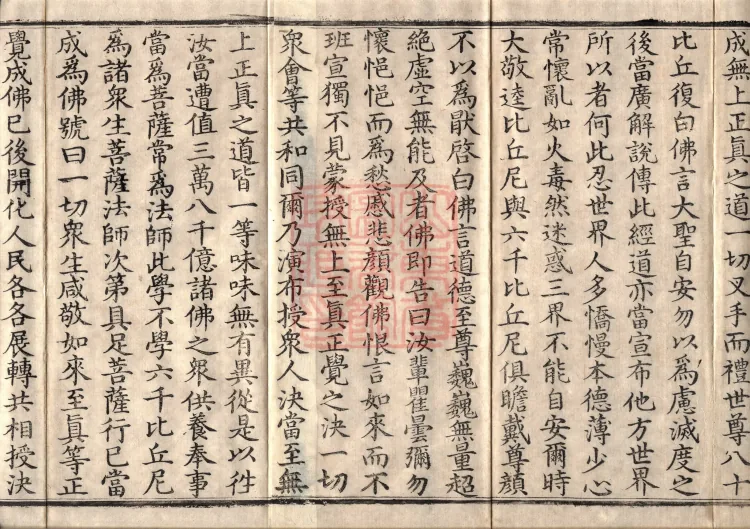 成無上正眞之道一切叉手而禮世尊八十
比丘復白佛言大聖自安勿以爲慮滅度之
後當廣解說傳此經道亦當宣布他方世界
所以者何此忍世界人多憍慢本德薄少心
常懷亂如火毒然迷惑三界不能自安爾時
大敬逵比丘尼與六千比丘尼俱瞻戴尊顏
不以爲猒啓白佛言道德至尊巍巍無量超
絕虛空無能及者佛即告曰汝輩瞿曇彌勿
懷悒悒而爲愁慼悲顏觀佛恨言如來而不
班宣獨不見蒙授無上至眞正覺之決一切
衆會等共和同爾乃演布授衆人決當至無
上正眞之道皆一等味味無有異從是以往
汝當遭值三萬八千億諸佛之衆供養奉事
當爲菩薩常爲法師此學不學六千比丘尼
爲諸衆生菩薩法師次第具足菩薩行已當
成爲佛號曰一切衆生咸敬如來至眞等正
覺成佛已後開化人民各各展轉共相授決